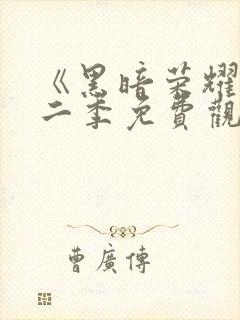 《黑暗荣耀
二季免費觀
曹廣傳